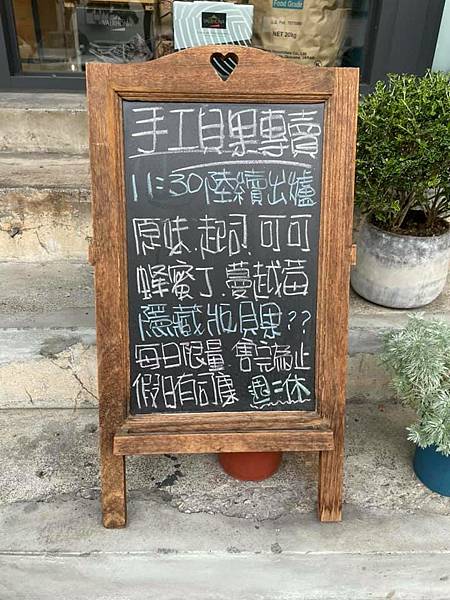 VALRHONA
Food Grade
NET 20kg
手工貝果專賣
11:30陸續出爐
原味.起司 可可
蜂蜜丁.蔓越莓
隱藏版貝果??
每日限量 售完為止
假日有可麗 週三休